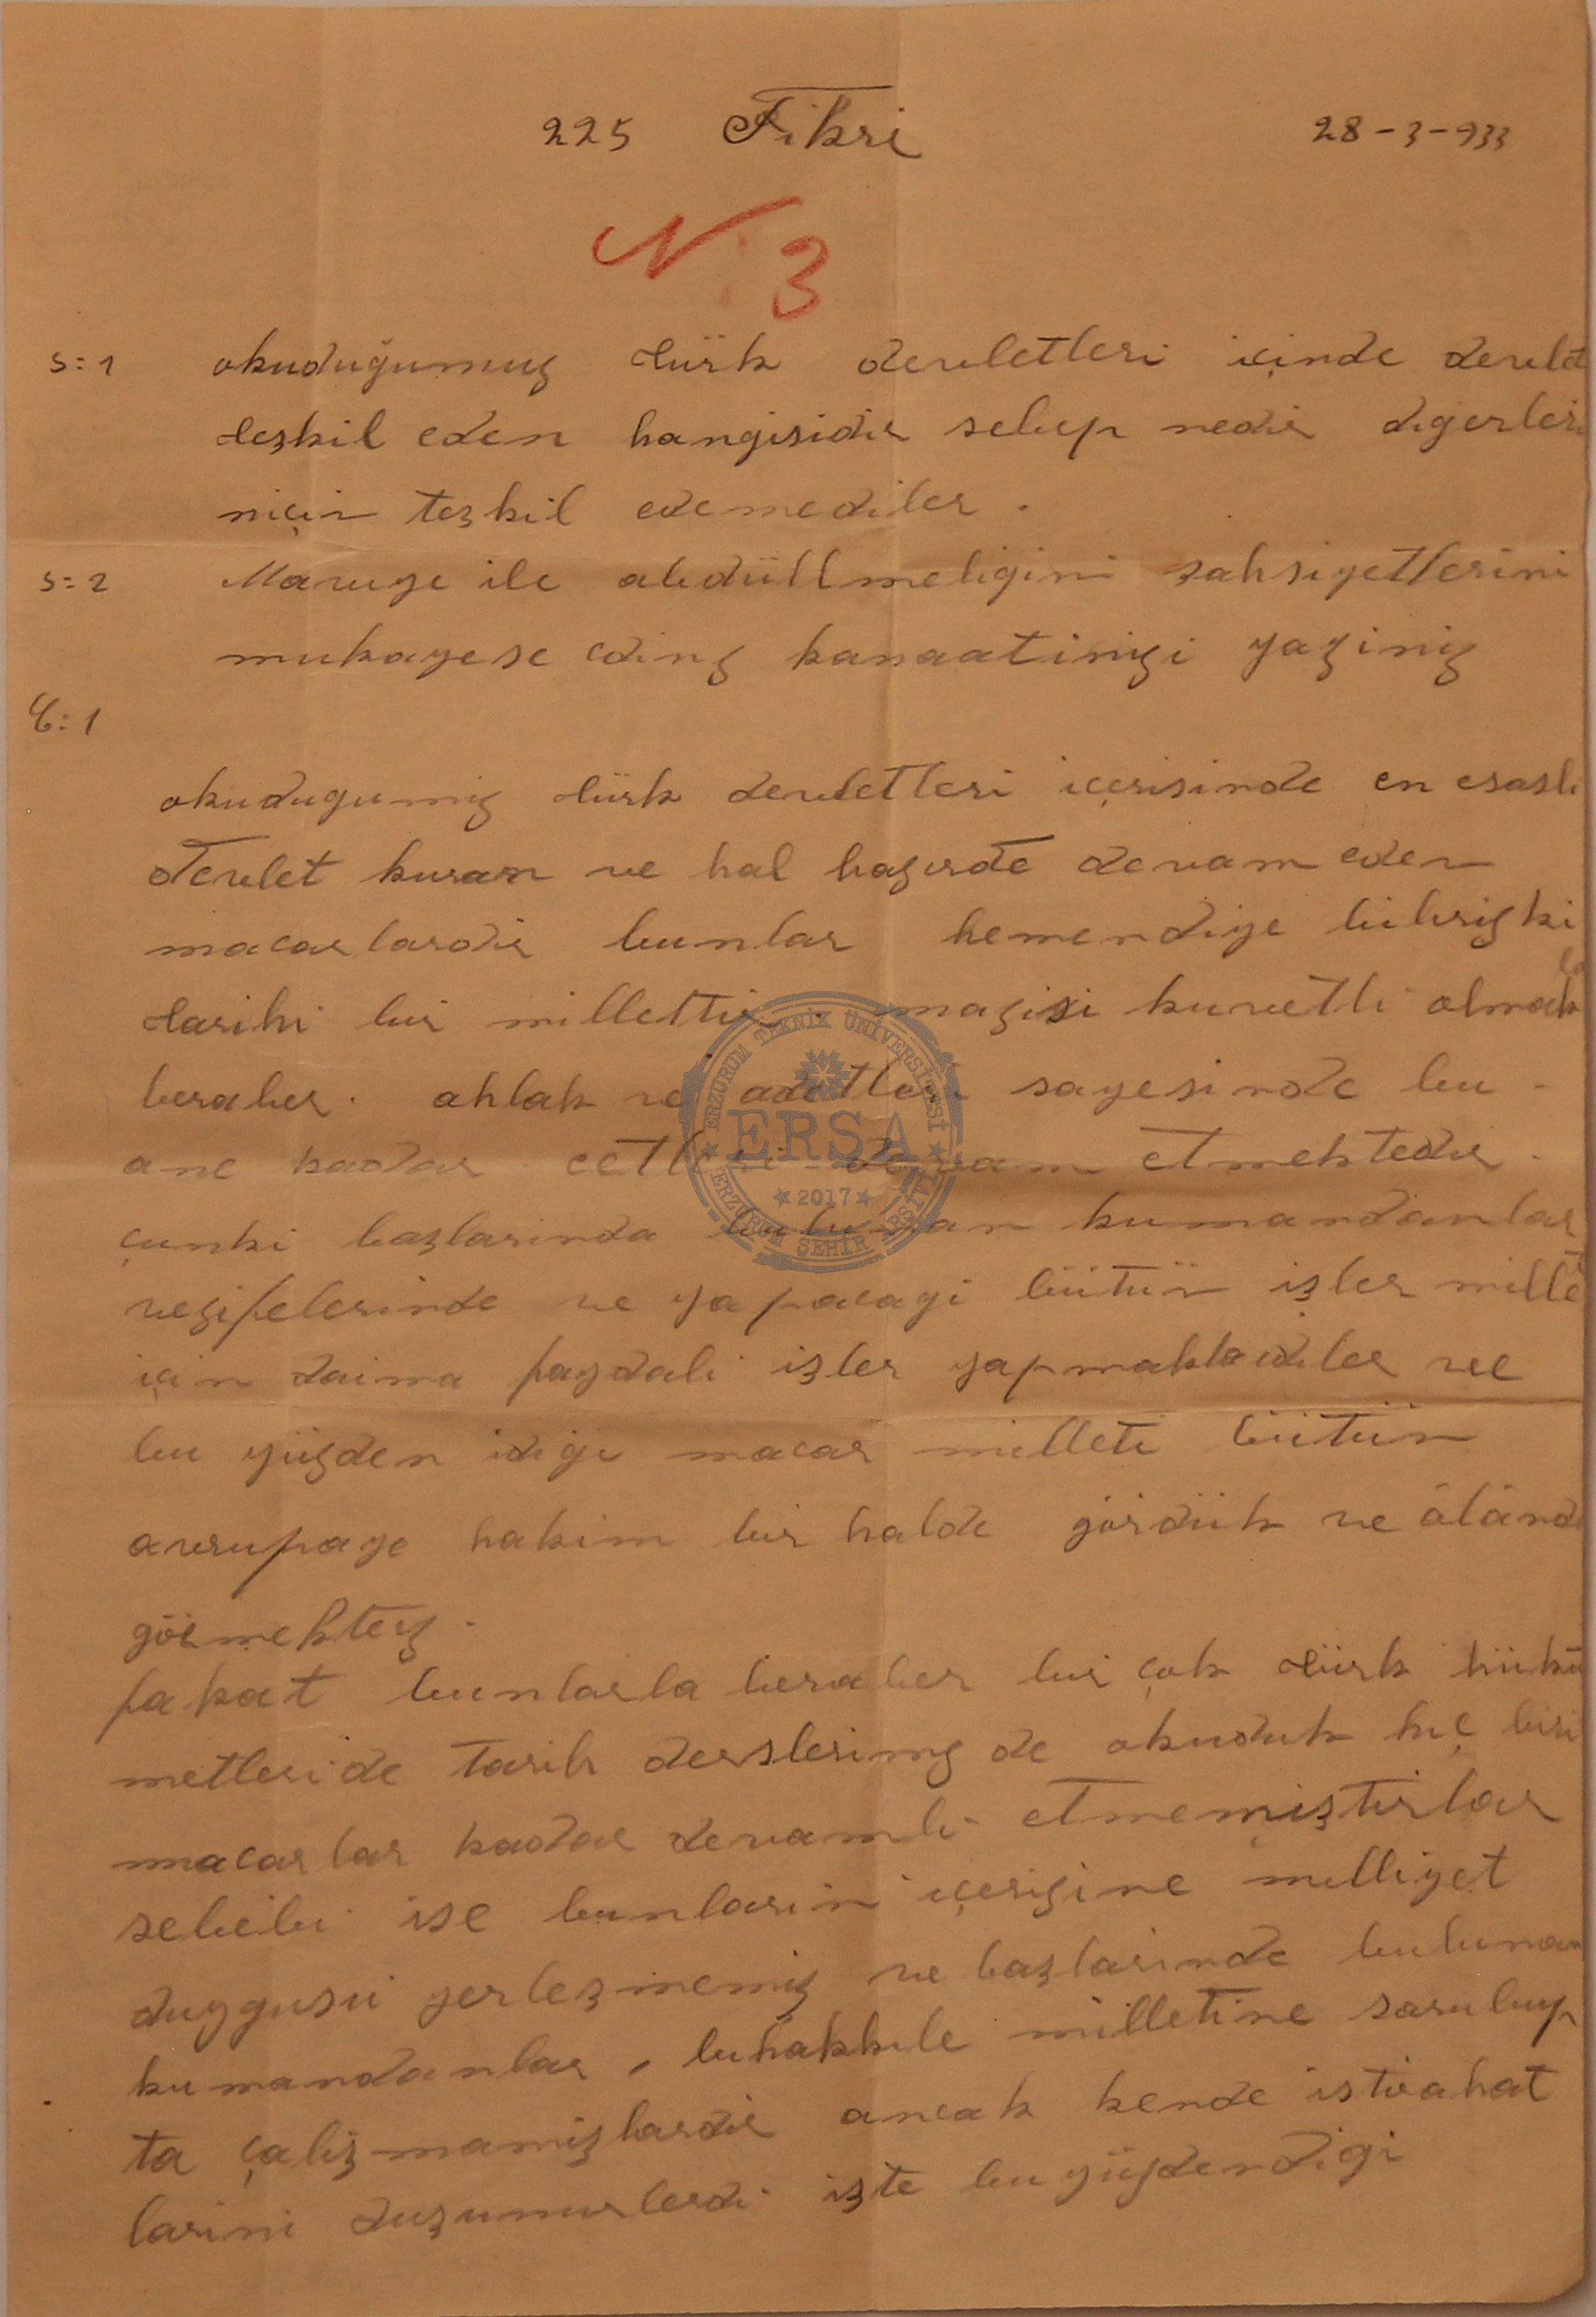 225 Fikri 28-3-933
N. 3
S:1 okuduğumuz türk devletleri içinde devlet
teşkil eden hangisidir sebep nedir digerleri
niçin teşkil edemediler .
S:2 Mavuye ile abdüllmeligini şahsiyetlerini
mukayese ediniz kanaatinizi yaziniz
C:1
okudugumiz türk devletleri içerisinde en esasli
Devlet kuran ve hal hazırde devam eden
macarlardir bunlar hemendiye bilirizki
tarihi bir millettir. mazisi kuvetli olmakla
beraber. ahlak ve adetleri sayesinde bu -
ane kadar devam etmektedir .
çunki başlarinda bulunan kumandanlar
vezifelerinde ve yapacagi bütün işler millet
için daima faydali işler yapmaktadiler ve
bu yüzden idigi macar milleti bütün
avrupaye hakim bir halde gördük ve âlânde
görmekteyz .
fakat bunlarla beraber bir çok türk hükü
metleride tarih derslerimz de okuduk hiç biri
macarlar kadar devamli etmemiştirlar
sebebi ise bunlarin içerisine milliyet
duygusu yerleşmemiş ve başlarinde bulunan
kumandanlar , bihakkile milletine sarulup
ta çalişmamişlardir ancak kende istirahat
larini duşunurlerdi işte bu yüzdendigi
ERZURUM TEKNİK ÜNİVERSİTESİ
ERSA
2017
ERZURUM ŞEHİR ARŞİVİ